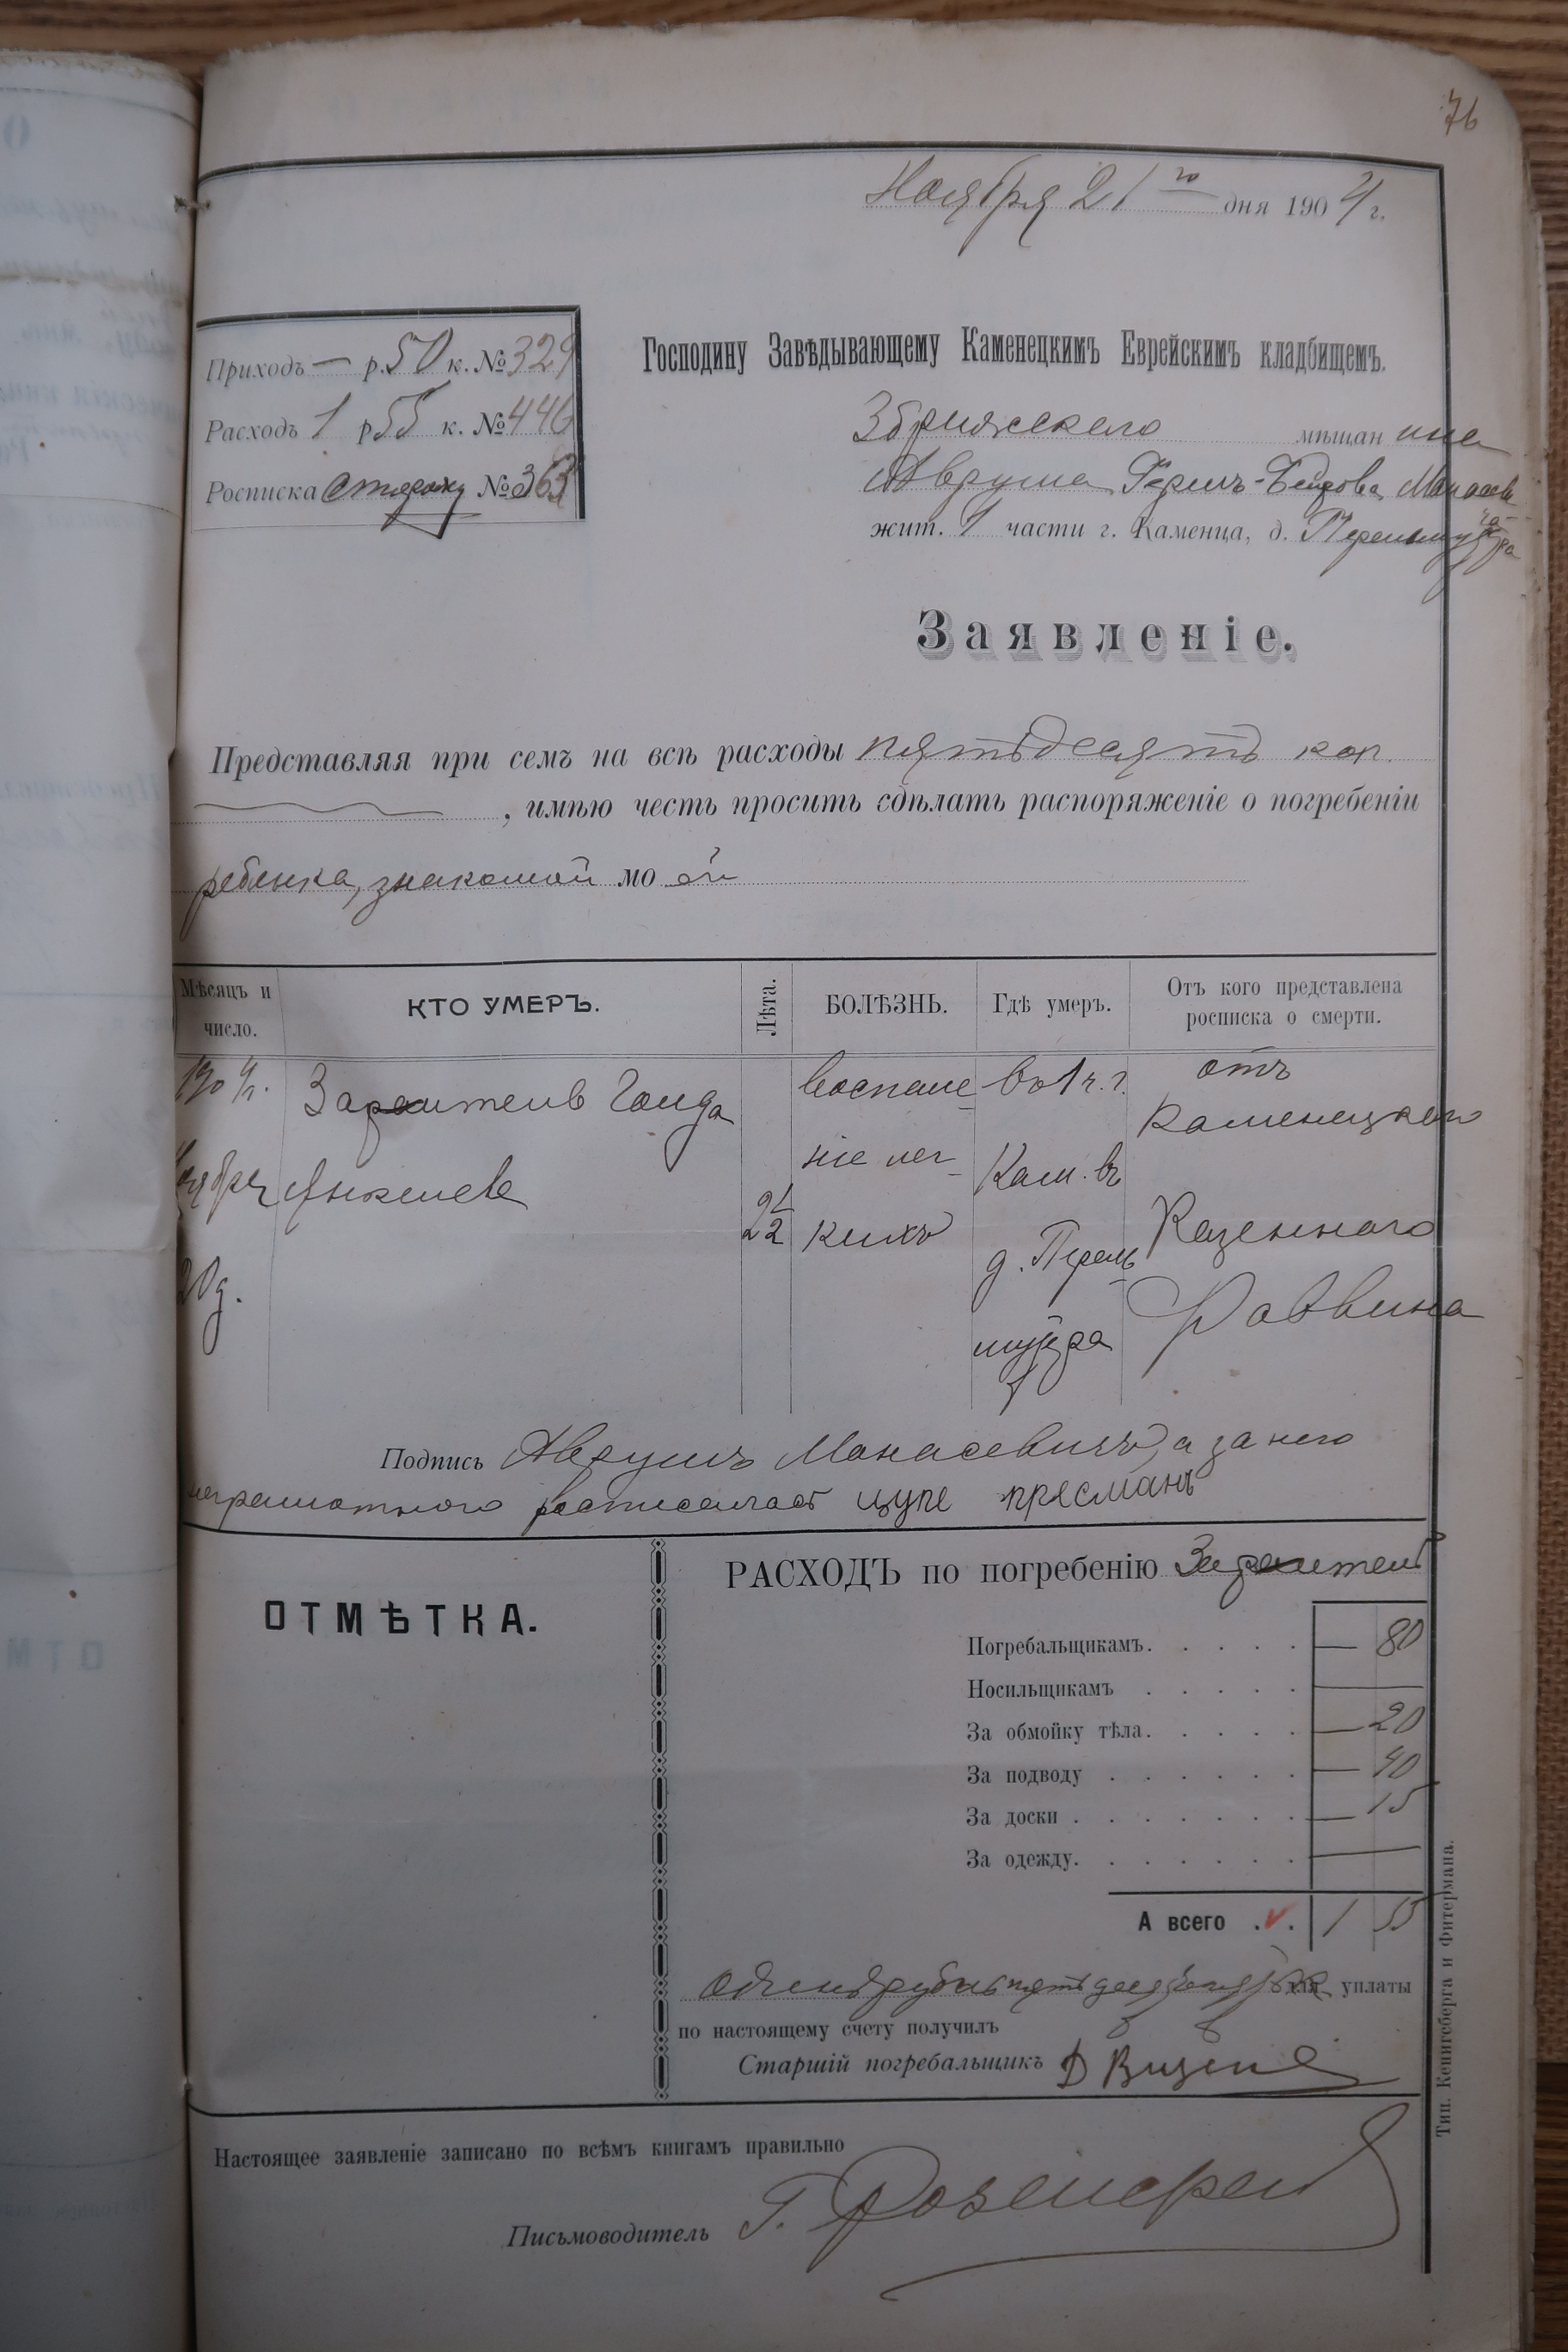 76
Ноября 21 го дня 1904 г.
Приходъ — р. 50 к. № 329
Расходъ 1 р 55 к. № 446
Росписка сторожу № 363
Господину Завѣдывающему Каменецкимъ Еврейскимъ кладбищемъ.
Збрижского мѣщанина
Аврума Гершъ-Беръова Манасевича
жит. 1 части г. Каменца, д. Перельмутера
Заявленіе.
Представляя при семъ на всѣ расходы пятьдесятъ коп.
, имѣю честь просить сдѣлать распоряженіе о погребеніи
ребенка, знакомой моей
Мѣсяцъ и число.
КТО УМЕРЪ.
Лѣта.
БОЛѢЗНЬ.
Гдѣ умеръ.
Отъ кого представлена росписка о смерти.
1904 г.
Ноября
20 д.
Голда
Янкелева
2 1/2
воспале
ніе лег
кихъ
въ 1 ч. г.
Кам. въ
д. Перель
мутера
отъ
Каменецкого
Казеннаго
Раввина
Подпись Аврумъ Манасевичъ, а за него
неграмотного росписался цупе пресманъ
ОТМѢТКА.
РАСХОДЪ по погребенію
Погребальщикамъ. — 80
Носильщикамъ —
За обмойку тѣла. — 20
За подводу — 40
За доски — 15
За одежду. —
А всего . 1 55
Одинъ рубль пятьдесятъ пять к для уплаты
по настоящему счету получилъ
Старшій погребальщикъ Д
Настоящее заявленіе записано по всѣмъ книгамъ правильно
Письмоводитель Г.
Тип. Кенигсберга и Фитермана.